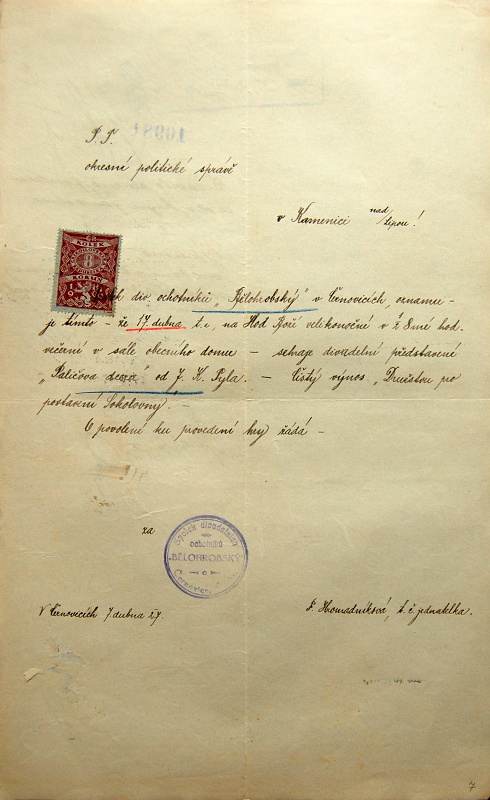 P. T.
okresní politické správě
v Kamenici nad Lipou!
KOLEK
8
KORUN
div. ochotníků „Bělohrobský" v Černovicích, oznamu-
je tímto – že 17. dubna t. r., na Hod Boží velikonoční v ½ 8mé hod.
večerní v sále obecního domu – sehraje divadelní představení
„Paličova dcera" od J. K. Tyla. – Čistý výnos „Družstvu pro
postavení Sokolovny". –
O povolení ku provedení hry žádá –
za
Spolek divadelních
ochotníků
„BĚLOHROBSKÝ"
V Černovicích 7 dubna 27.
t. č. jednatelka.
7